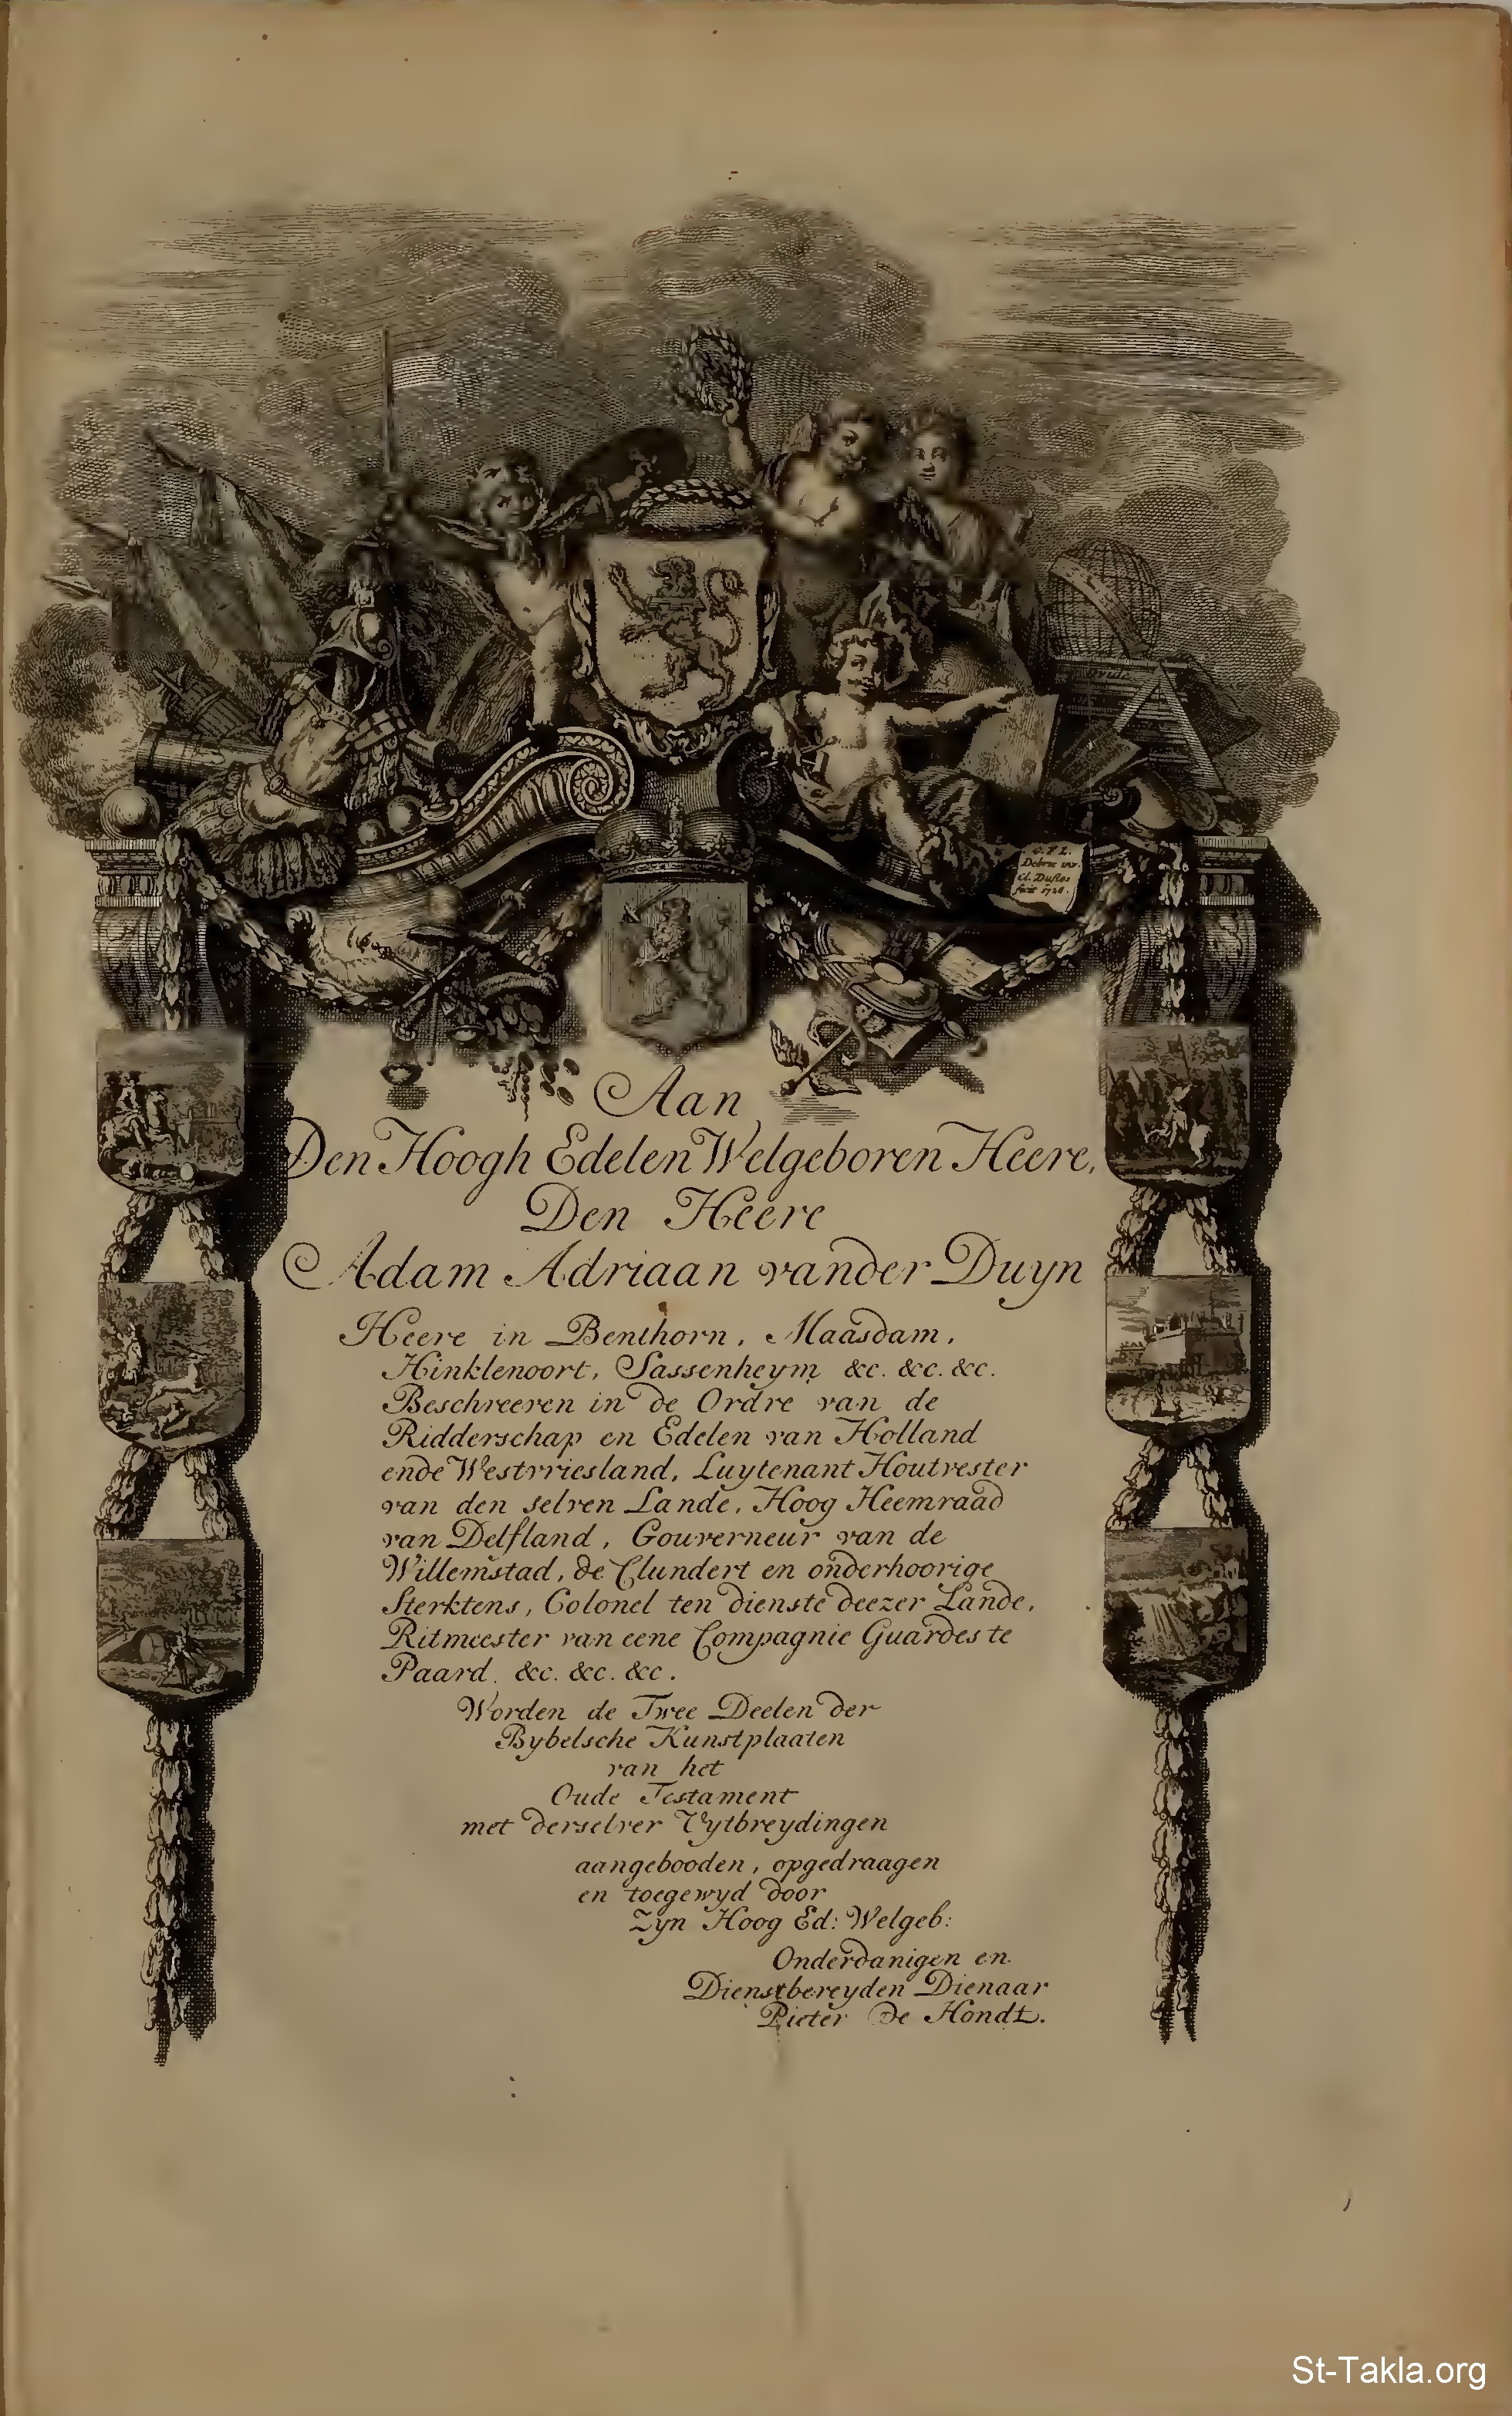 Ovid
G. F. L.
Debrie inv.
Cl. Duflos
fecit 1728.
Aan
Den Hoogh Edelen Welgeboren Heere,
Den Heere
Adam Adriaan vander Duyn
Heere in Benthorn, Maasdam,
Hinklenoort, Sassenheym &c. &c. &c.
Beschreeven in de Ordre van de
Ridderschap en Edelen van Holland
ende Westvriesland, Luytenant Houtvester
van den selven Lande, Hoog Heemraad
van Delfland, Gouverneur van de
Willemstad, de Clundert en onderhoorige
Sterktens, Colonel ten dienste deezer Lande,
Ritmeester van eene Compagnie Guardes te
Paard. &c. &c. &c.
Worden de Twee Deelen der
Bybelsche Kunstplaaten
van het
Oude Testament
met derselver Vytbreydingen
aangebooden, opgedraagen
en toegewyd door
Zyn Hoog Ed: Welgeb:
Onderdanigen en
Dienstbereyden Dienaar
Pieter De Hondt.
St-Takla.org